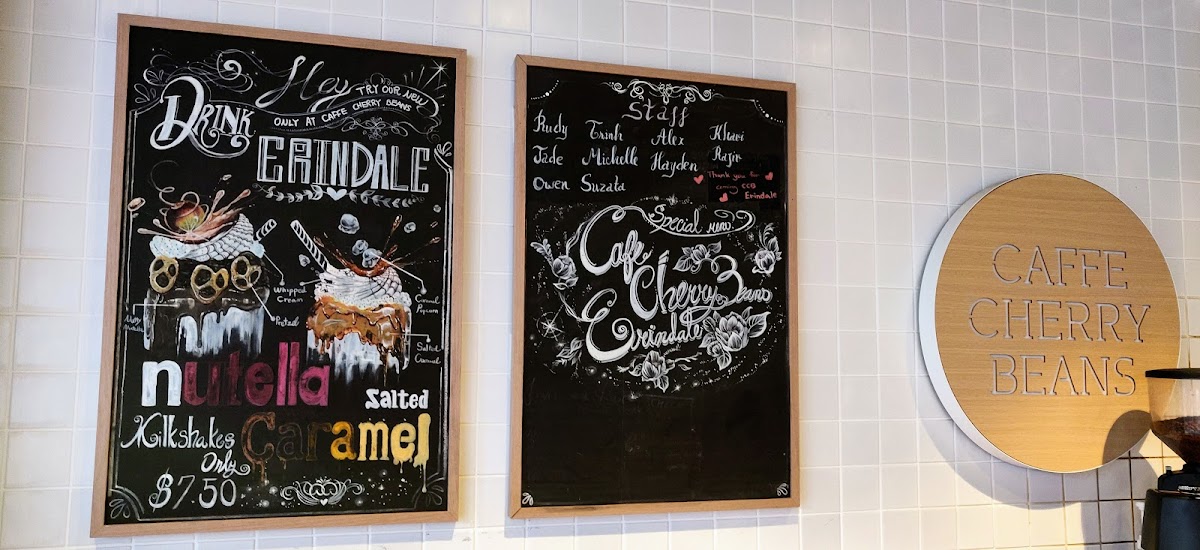 Hey
TRY OUR NEW
DRINK
ONLY AT CAFFE CHERRY BEANS
ERINDALE
Whipped
Cream
Pretzel
Caramel
Popcorn
Salted
Caramel
nutella
Salted
Caramel
Milkshakes
Only
$7.50
Staff
Rudy Trinh Alex Khari
Jade Michelle Hayden Rajiv
Owen Suzata
Thank you for
coming CCB
Erindale
Special menu
Cafe
Cherry Beans
Erindale
CAFFE
CHERRY
BEANS